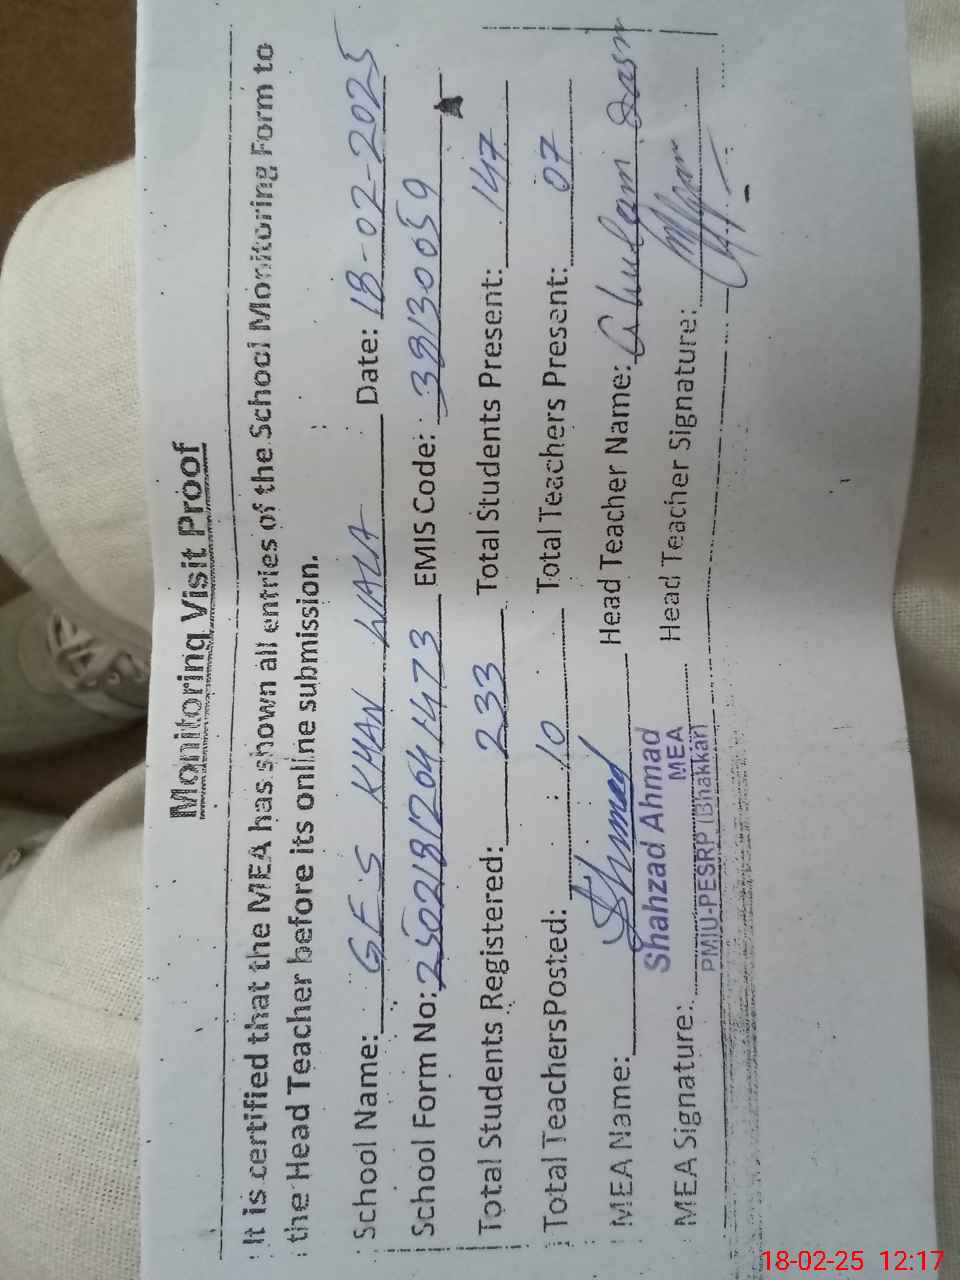 Monitoring Visit Proof
It is certified that the MEA has shown all entries of the School Monitoring Form to
the Head Teacher before its online submission.
School Name: GES KHAN WALA Date: 18-02-2025
School Form No: 25021812641473 EMIS Code: 38130059
Total Students Registered: 233 Total Students Present: 147
Total Teachers Posted: 10 Total Teachers Present: 07
MEA Name: Head Teacher Name: Ghulam
Shahzad Ahmad
MEA
PMIU-PESRP (Bhakkar)
MEA Signature: Head Teacher Signature:
18-02-25 12:17